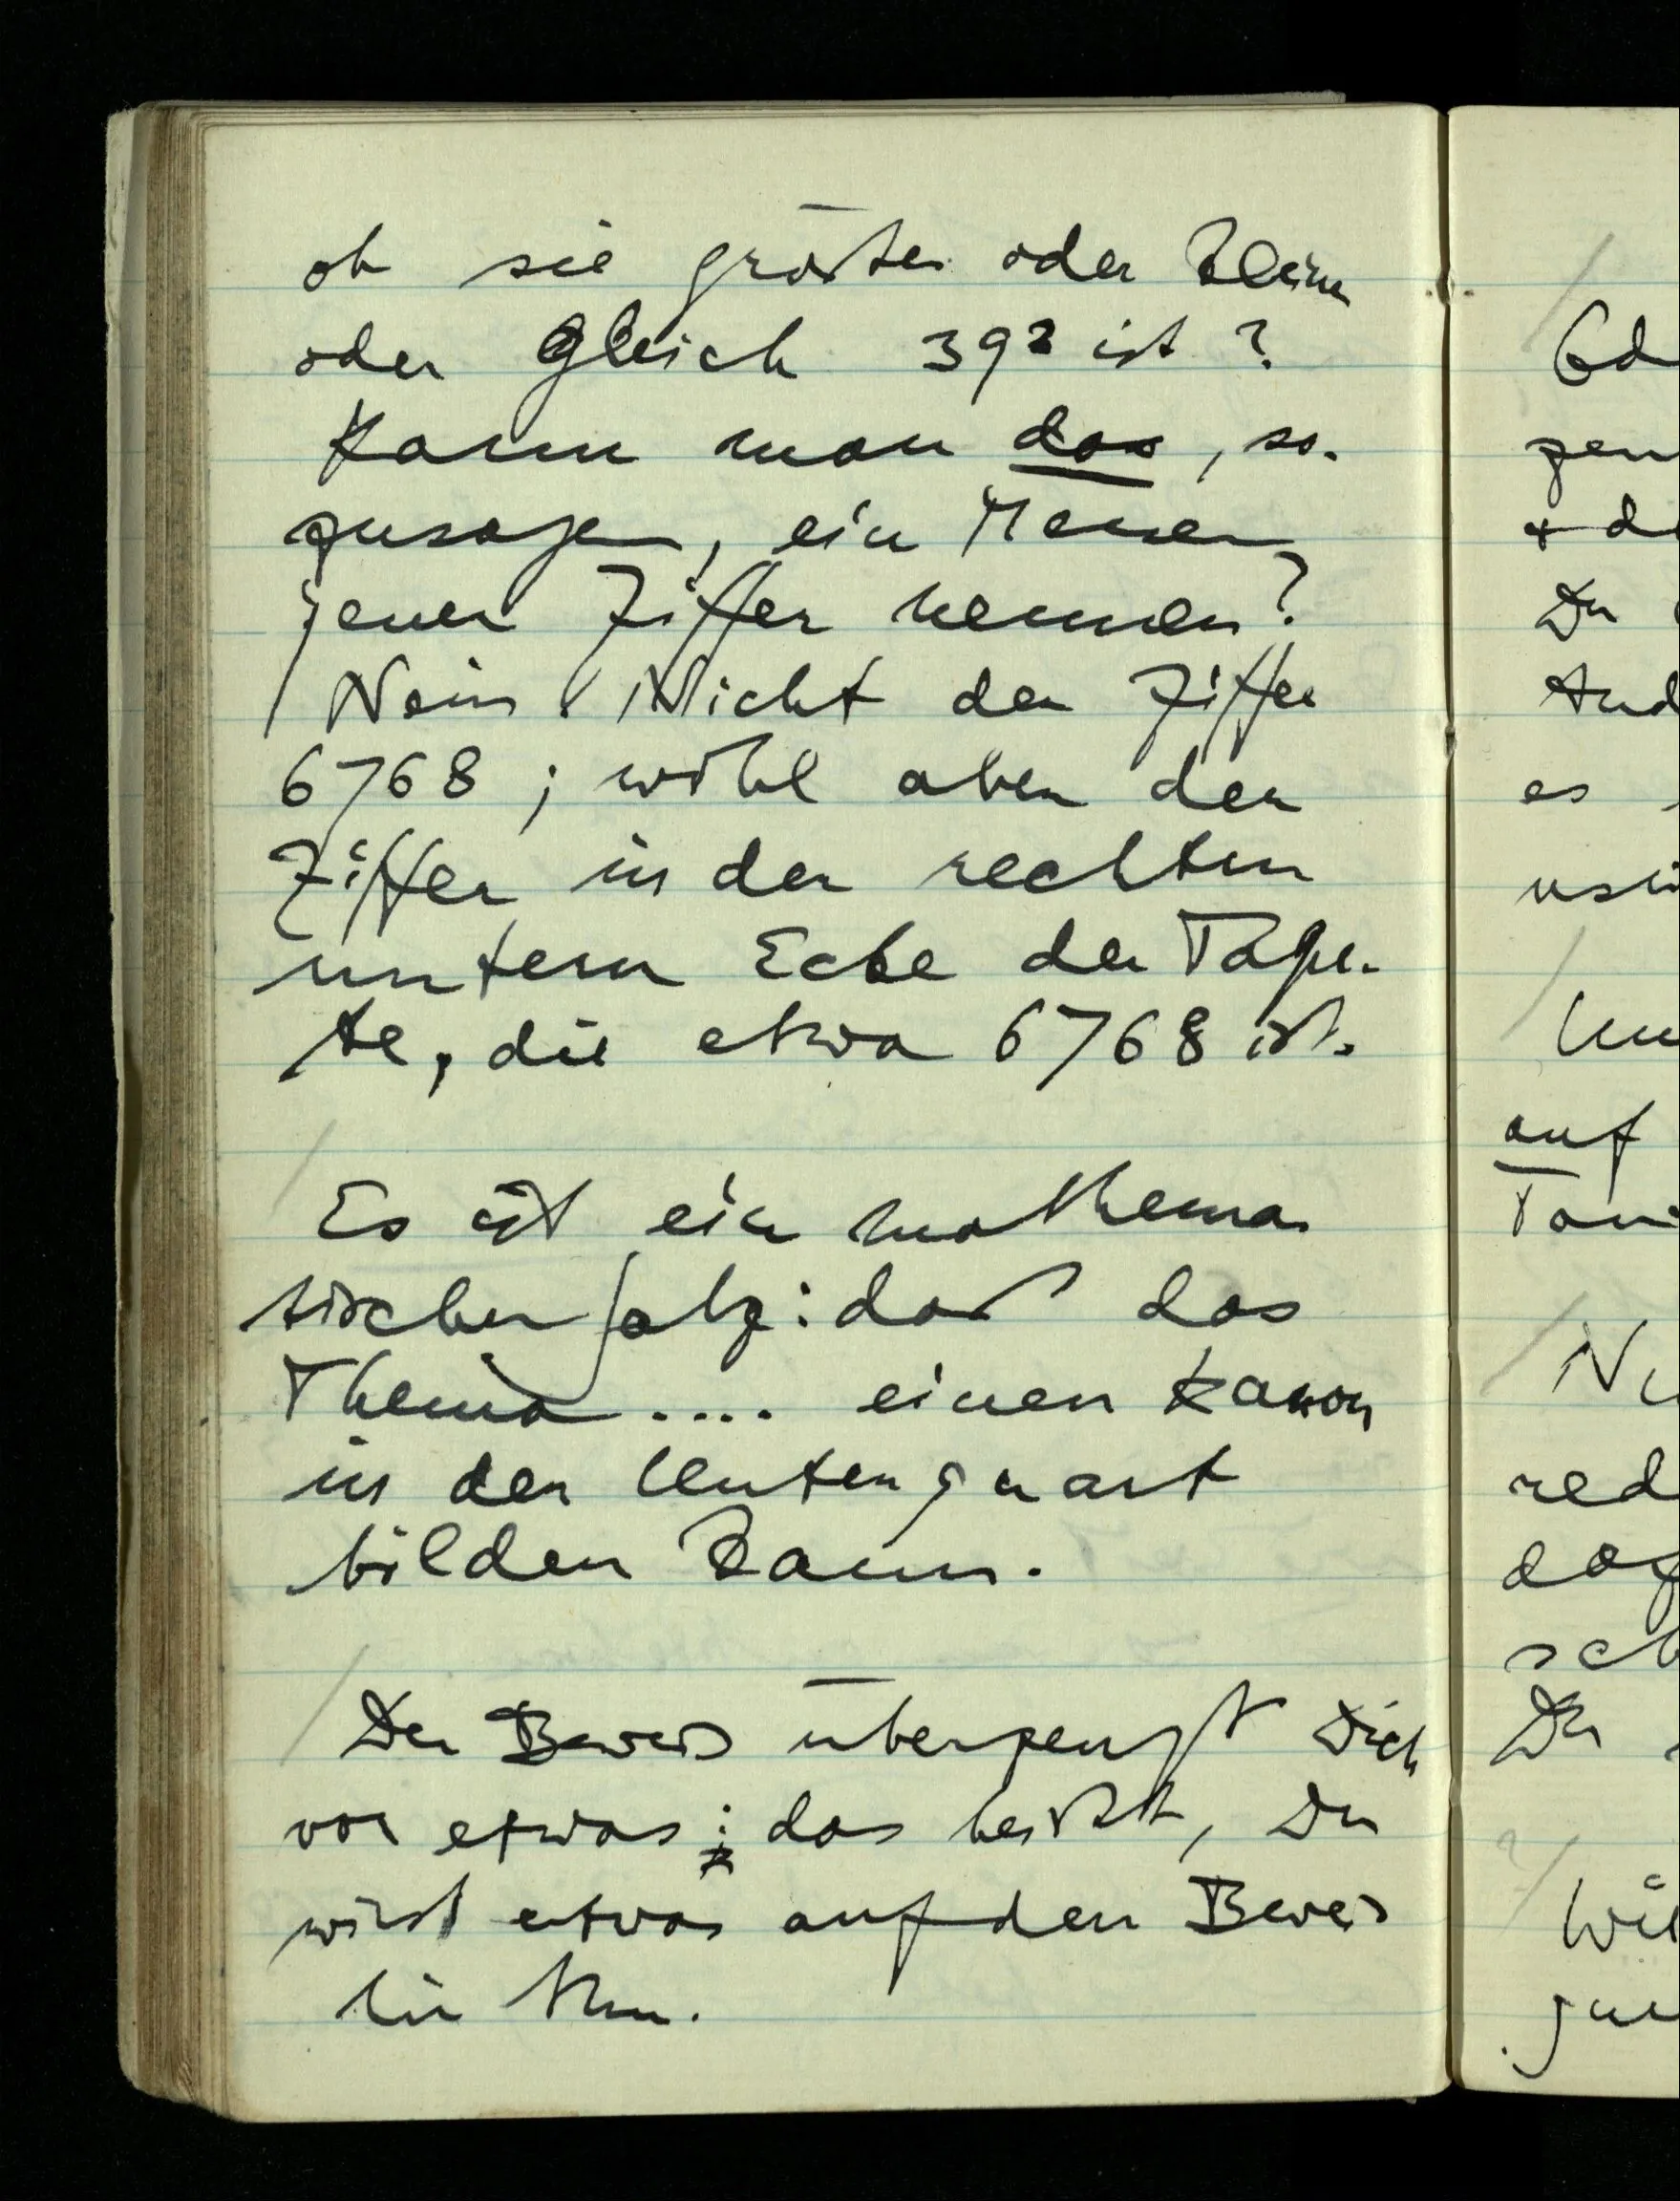 ob sie größer oder kleiner
oder gleich 392 ist?
Kann man das, so-
zusagen, ein Messen
jener Ziffer nennen?
Nein! Nicht der Ziffer
6768; wohl aber der
Ziffer in der rechten
untern Ecke der Tape-
te, die etwa 6768 ist.
Es ist ein mathema-
tischer Satz: daß das
Thema .... einen Kanon
in der Unterquart
bilden kann.
Der Beweis überzeugt Dich
von etwas; das heißt, Du
wirst etwas auf den Beweis
hin thun.
es
auf
Du